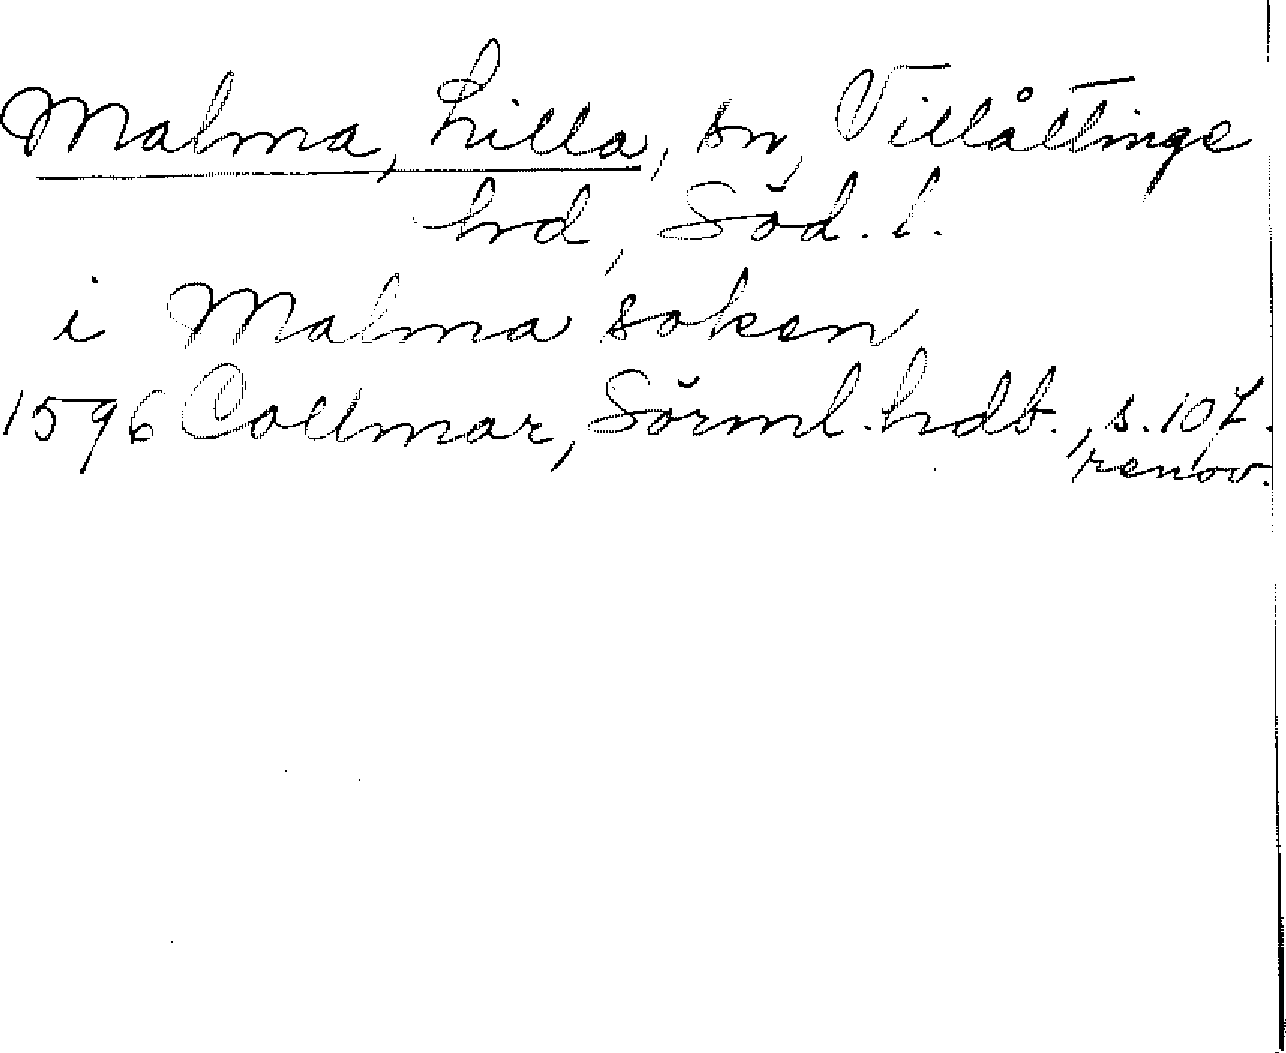 Malma, Lilla, sn, Villåttinge
hrd, Söd. l.
i Malma soken
1596 Collmar, Sörml. hdb., s. 107.
renov.